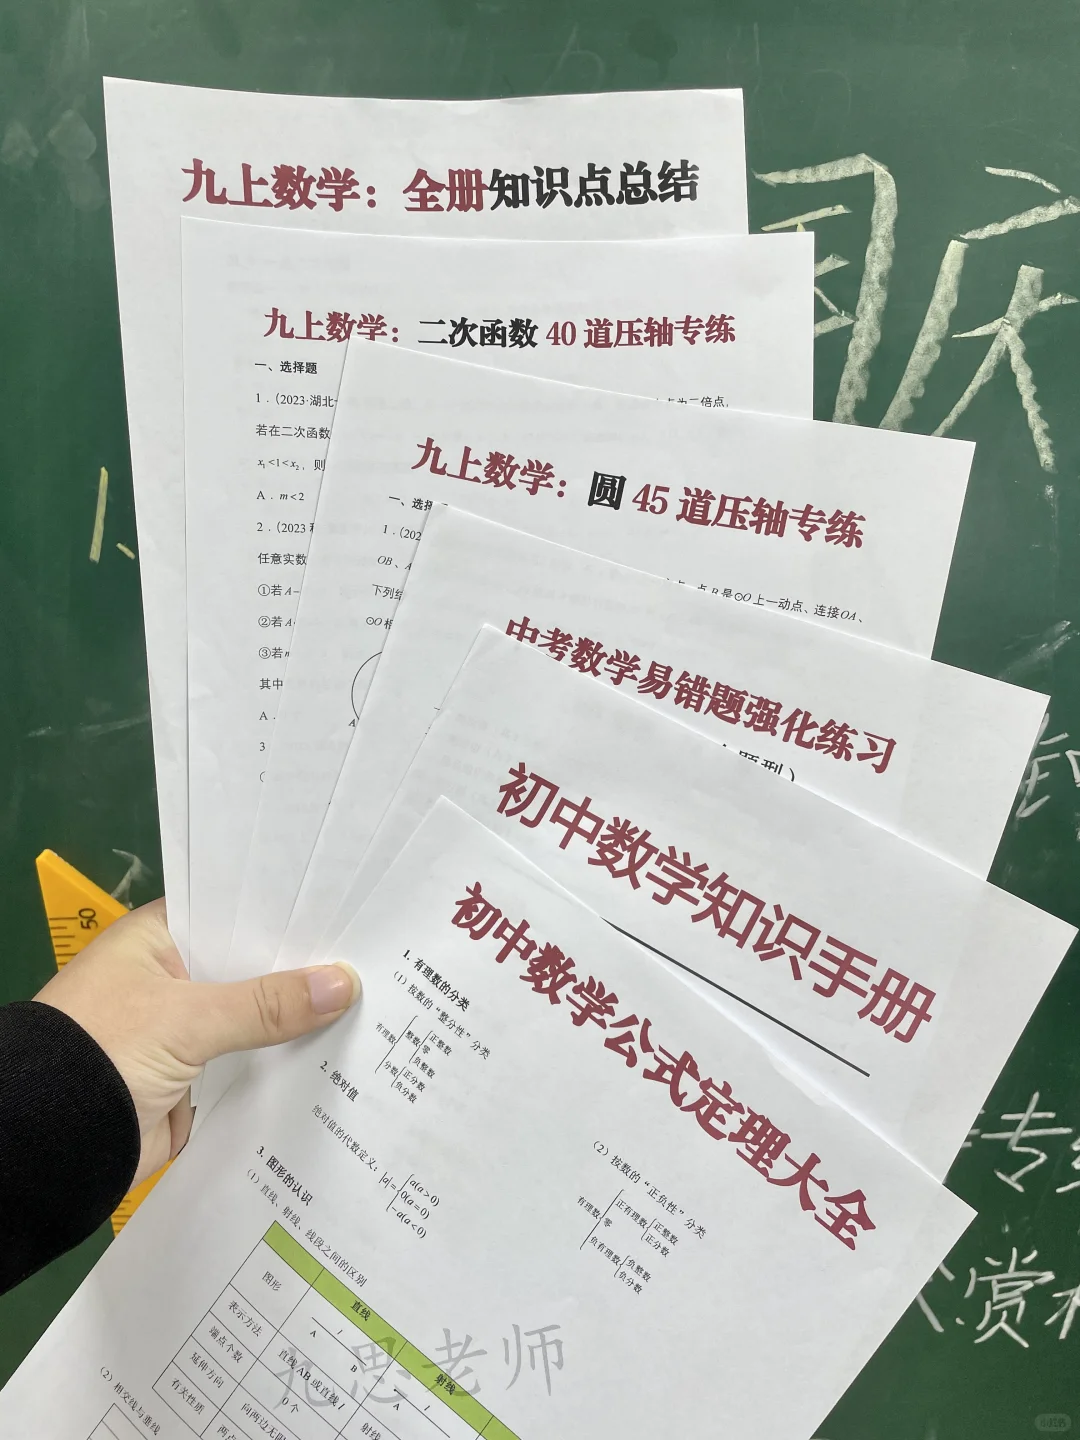 九上数学：全册知识点总结
九上数学：二次函数 40 道压轴专练
一、选择题
1．(2023·湖北
若在二次函数
x₁<1<x₂，则
A．m<2
2．(2023
任意实数
①若A
②若A
③若
其中
A．
3
九上数学：圆 45 道压轴专练
一、选择
1．(202
是⊙O上一动点、连接OA、
OB、
下列结
⊙O
A
中考数学易错题强化练习
题型）
初中数学知识手册
初中数学公式定理大全
1. 有理数的分类
（1）按数的“整分性”分类
有理数
整数
正整数
零
负整数
分数
正分数
负分数
（2）按数的“正负性”分类
有理数
正有理数
正整数
正分数
零
负有理数
负整数
负分数
2. 绝对值
绝对值的代数定义：|a|=
a(a>0)
0(a=0)
-a(a<0)
3. 图形的认识
（1）直线、射线、线段之间的区别
图形 直线 射线
A l B
A l
表示方法 直线AB或直线l 射线
端点个数 0个
延伸方向 向两边无限
有关性质 两点
（2）相交线与垂线
九思老师
国庆
50
专
赏
小红书